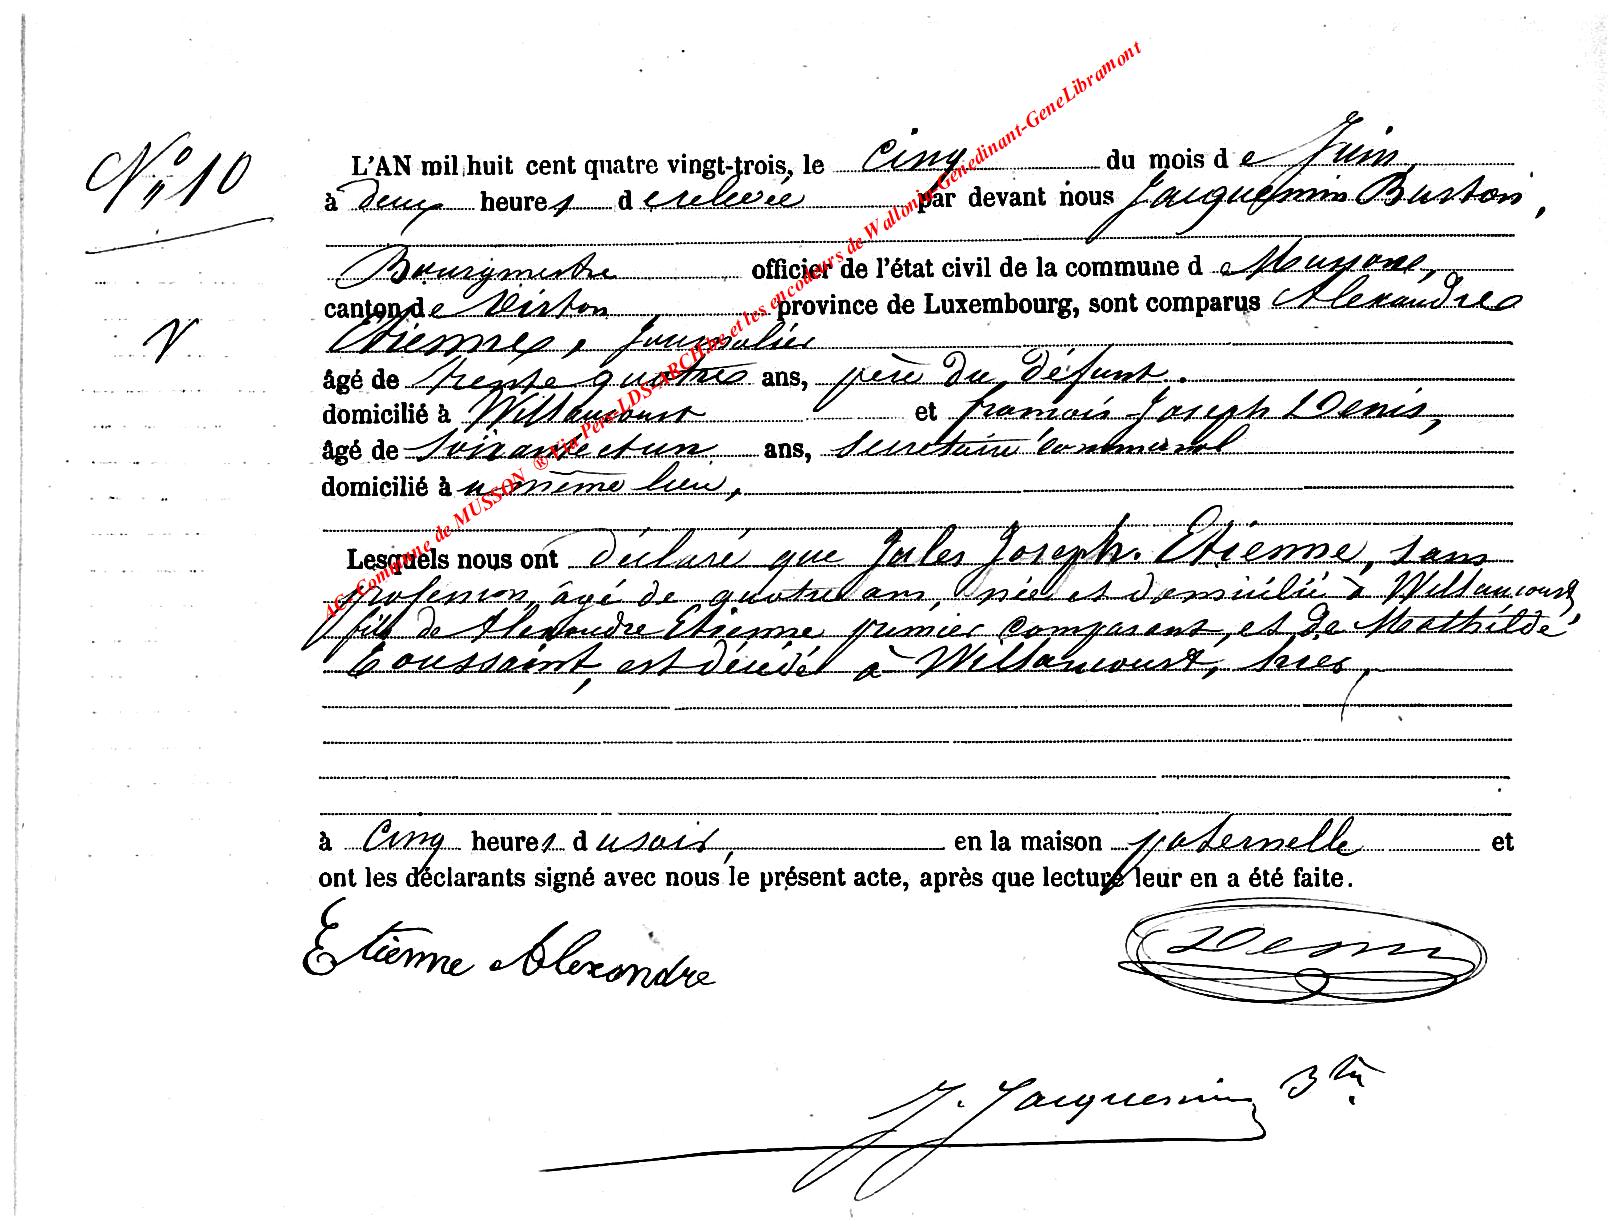 N° 10
L'AN mil huit cent quatre vingt-trois, le cinq du mois de Juin,
à deux heures de relevée par devant nous Jacquemin Buston,
Bourgmestre officier de l'état civil de la commune de Musson,
canton de Virton, province de Luxembourg, sont comparus Alexandre
Etienne, journalier
âgé de trente quatre ans, père du défunt.
domicilié à Willancourt et francois Joseph Denis,
âgé de soixante et un ans, secrétaire communal
domicilié au même lieu,
Lesquels nous ont déclaré que Jules Joseph Etienne, sans
profession, âgé de quatre ans, née et domicilié à Willancourt,
fils de Alexandre Etienne premier comparant, et de Mathilde
Toussaint, est décédé à Willancourt, hier,
à cinq heures du soir, en la maison paternelle et
ont les déclarants signé avec nous le présent acte, après que lecture leur en a été faite.
Etienne Alexandre
Denis
J. Jacquemin Btn.
AC-Commune de MUSSON ® Via Pers-LDS-ARCH.be et les encodeurs de Wallonia-Genedinant-GeneLibramont